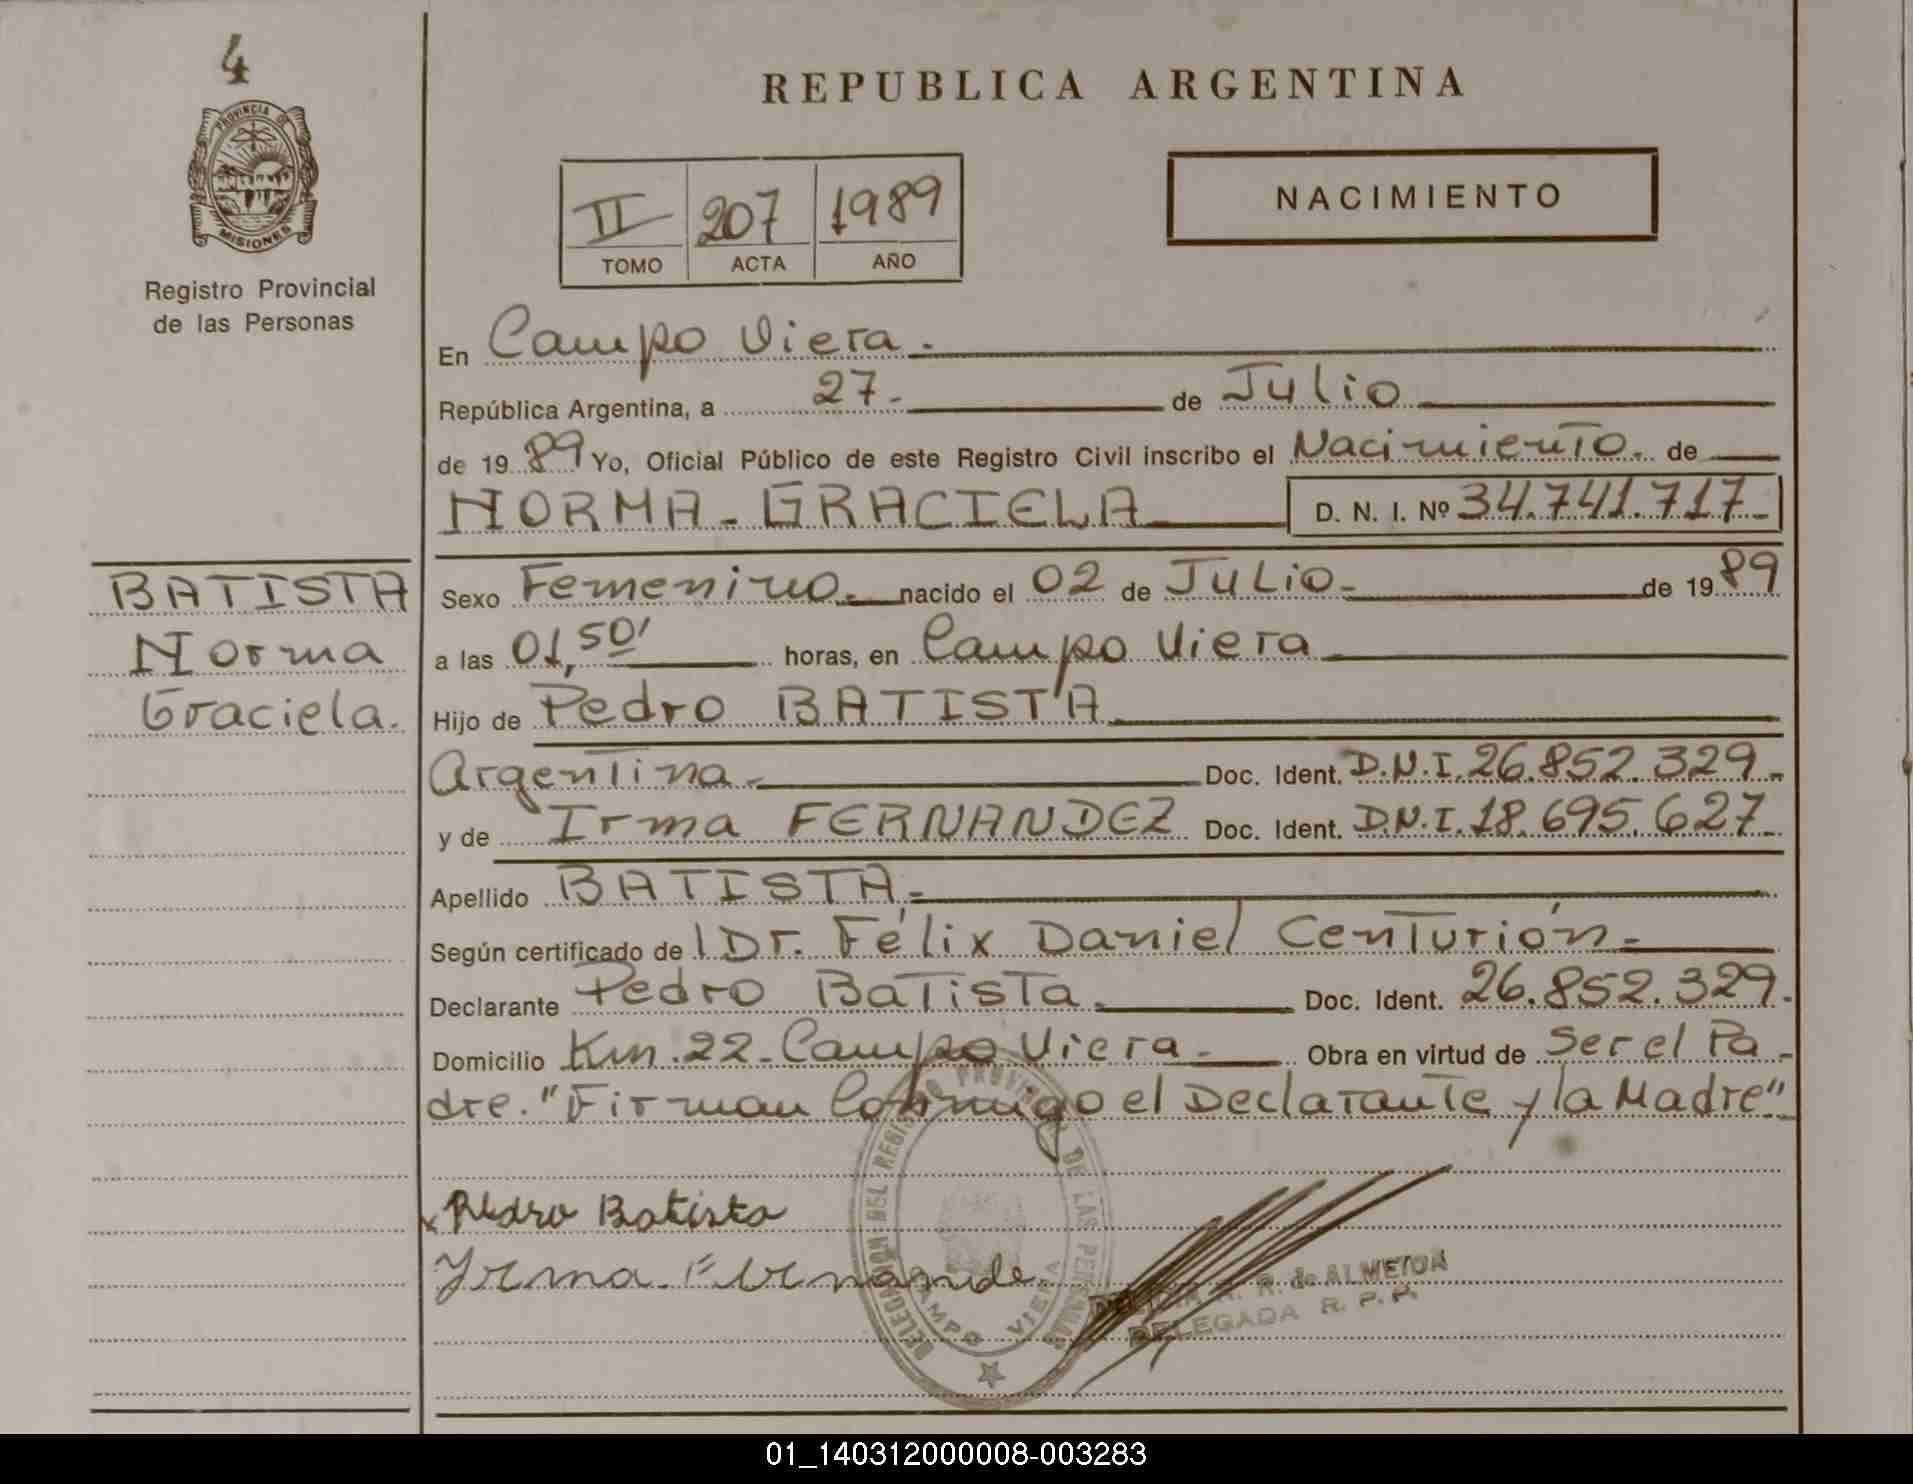 4
PROVINCIA DE
MISIONES
Registro Provincial
de las Personas
BATISTA
Norma
Graciela.
REPUBLICA ARGENTINA
II 207 1989
TOMO ACTA AÑO
NACIMIENTO
En Campo Viera.
República Argentina, a 27- de Julio
de 19 89 Yo, Oficial Público de este Registro Civil inscribo el Nacimiento. de
NORMA-GRACIELA D. N. I. Nº 34.741.717-
Sexo Femenino. nacido el 02 de Julio- de 19 89
a las 01,50' horas, en Campo Viera
Hijo de Pedro BATISTA
Argentina- Doc. Ident. D.N.I. 26.852.329-
y de Irma FERNANDEZ Doc. Ident. D.N.I. 18.695.627
Apellido BATISTA-
Según certificado de Dr. Félix Daniel Centurión-
Declarante Pedro Batista. Doc. Ident. 26.852.329.
Domicilio Km.22-Campo Viera- Obra en virtud de Ser el Pa-
dre. "Firman Conmigo el Declarante y la Madre"
x Pedro Batista
Yrma Fernande
DELEGACION DEL REGISTRO PROVINCIAL DE LAS PERSONAS
CAMPO VIERA
R. de ALMEIDA
DELEGADA R. P. P.
01_140312000008-003283